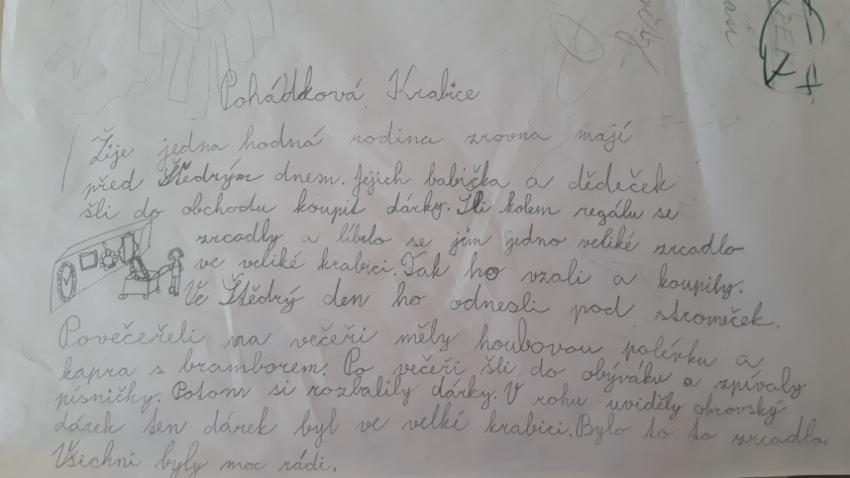 Pohádková Krabice
Žije jedna hodná rodina zrovna mají
před Štědrým dnem. Jejich babička a dědeček
šli do obchodu koupit dárky. Šli kolem regálu se
zrcadly a líbilo se jim jedno veliké zrcadlo
ve veliké krabici. Tak ho vzali a koupily.
Ve Štědrý den ho odnesli pod stromeček.
Povečeřeli na večeři měly houbovou polévku a
kapra s bramborem. Po večeři šli do obýváku a zpívaly
písničky. Potom si rozbalily dárky. V rohu uviděly obrovský
dárek ten dárek byl ve velké krabici. Bylo to to zrcadlo.
Všichni byly moc rádi.